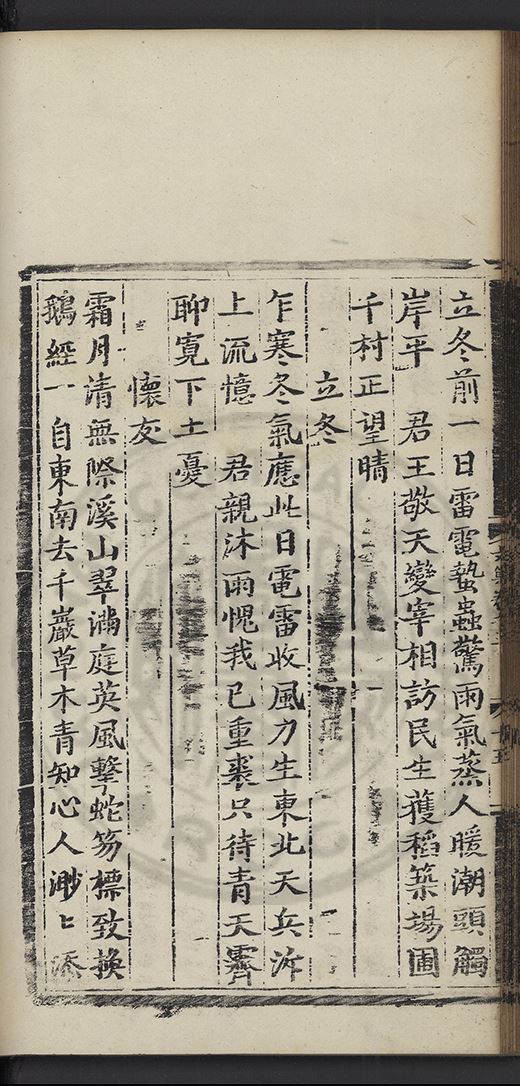 立冬前一日雷電蟄蟲驚雨氣蒸人暖潮頭觸
岸平　君王敬天變宰相訪民生穫稻築場圃
千村正望晴
立冬
乍寒冬氣應此日電雷收風力生東北天兵泝
上流憶　君親沐雨愧我已重裘只待青天霽
聊寬下土憂
懷友
霜月清無際溪山翠滿庭英風擊蛇笏標致換
鵝經一自東南去千巖草木青知心人渺〻添